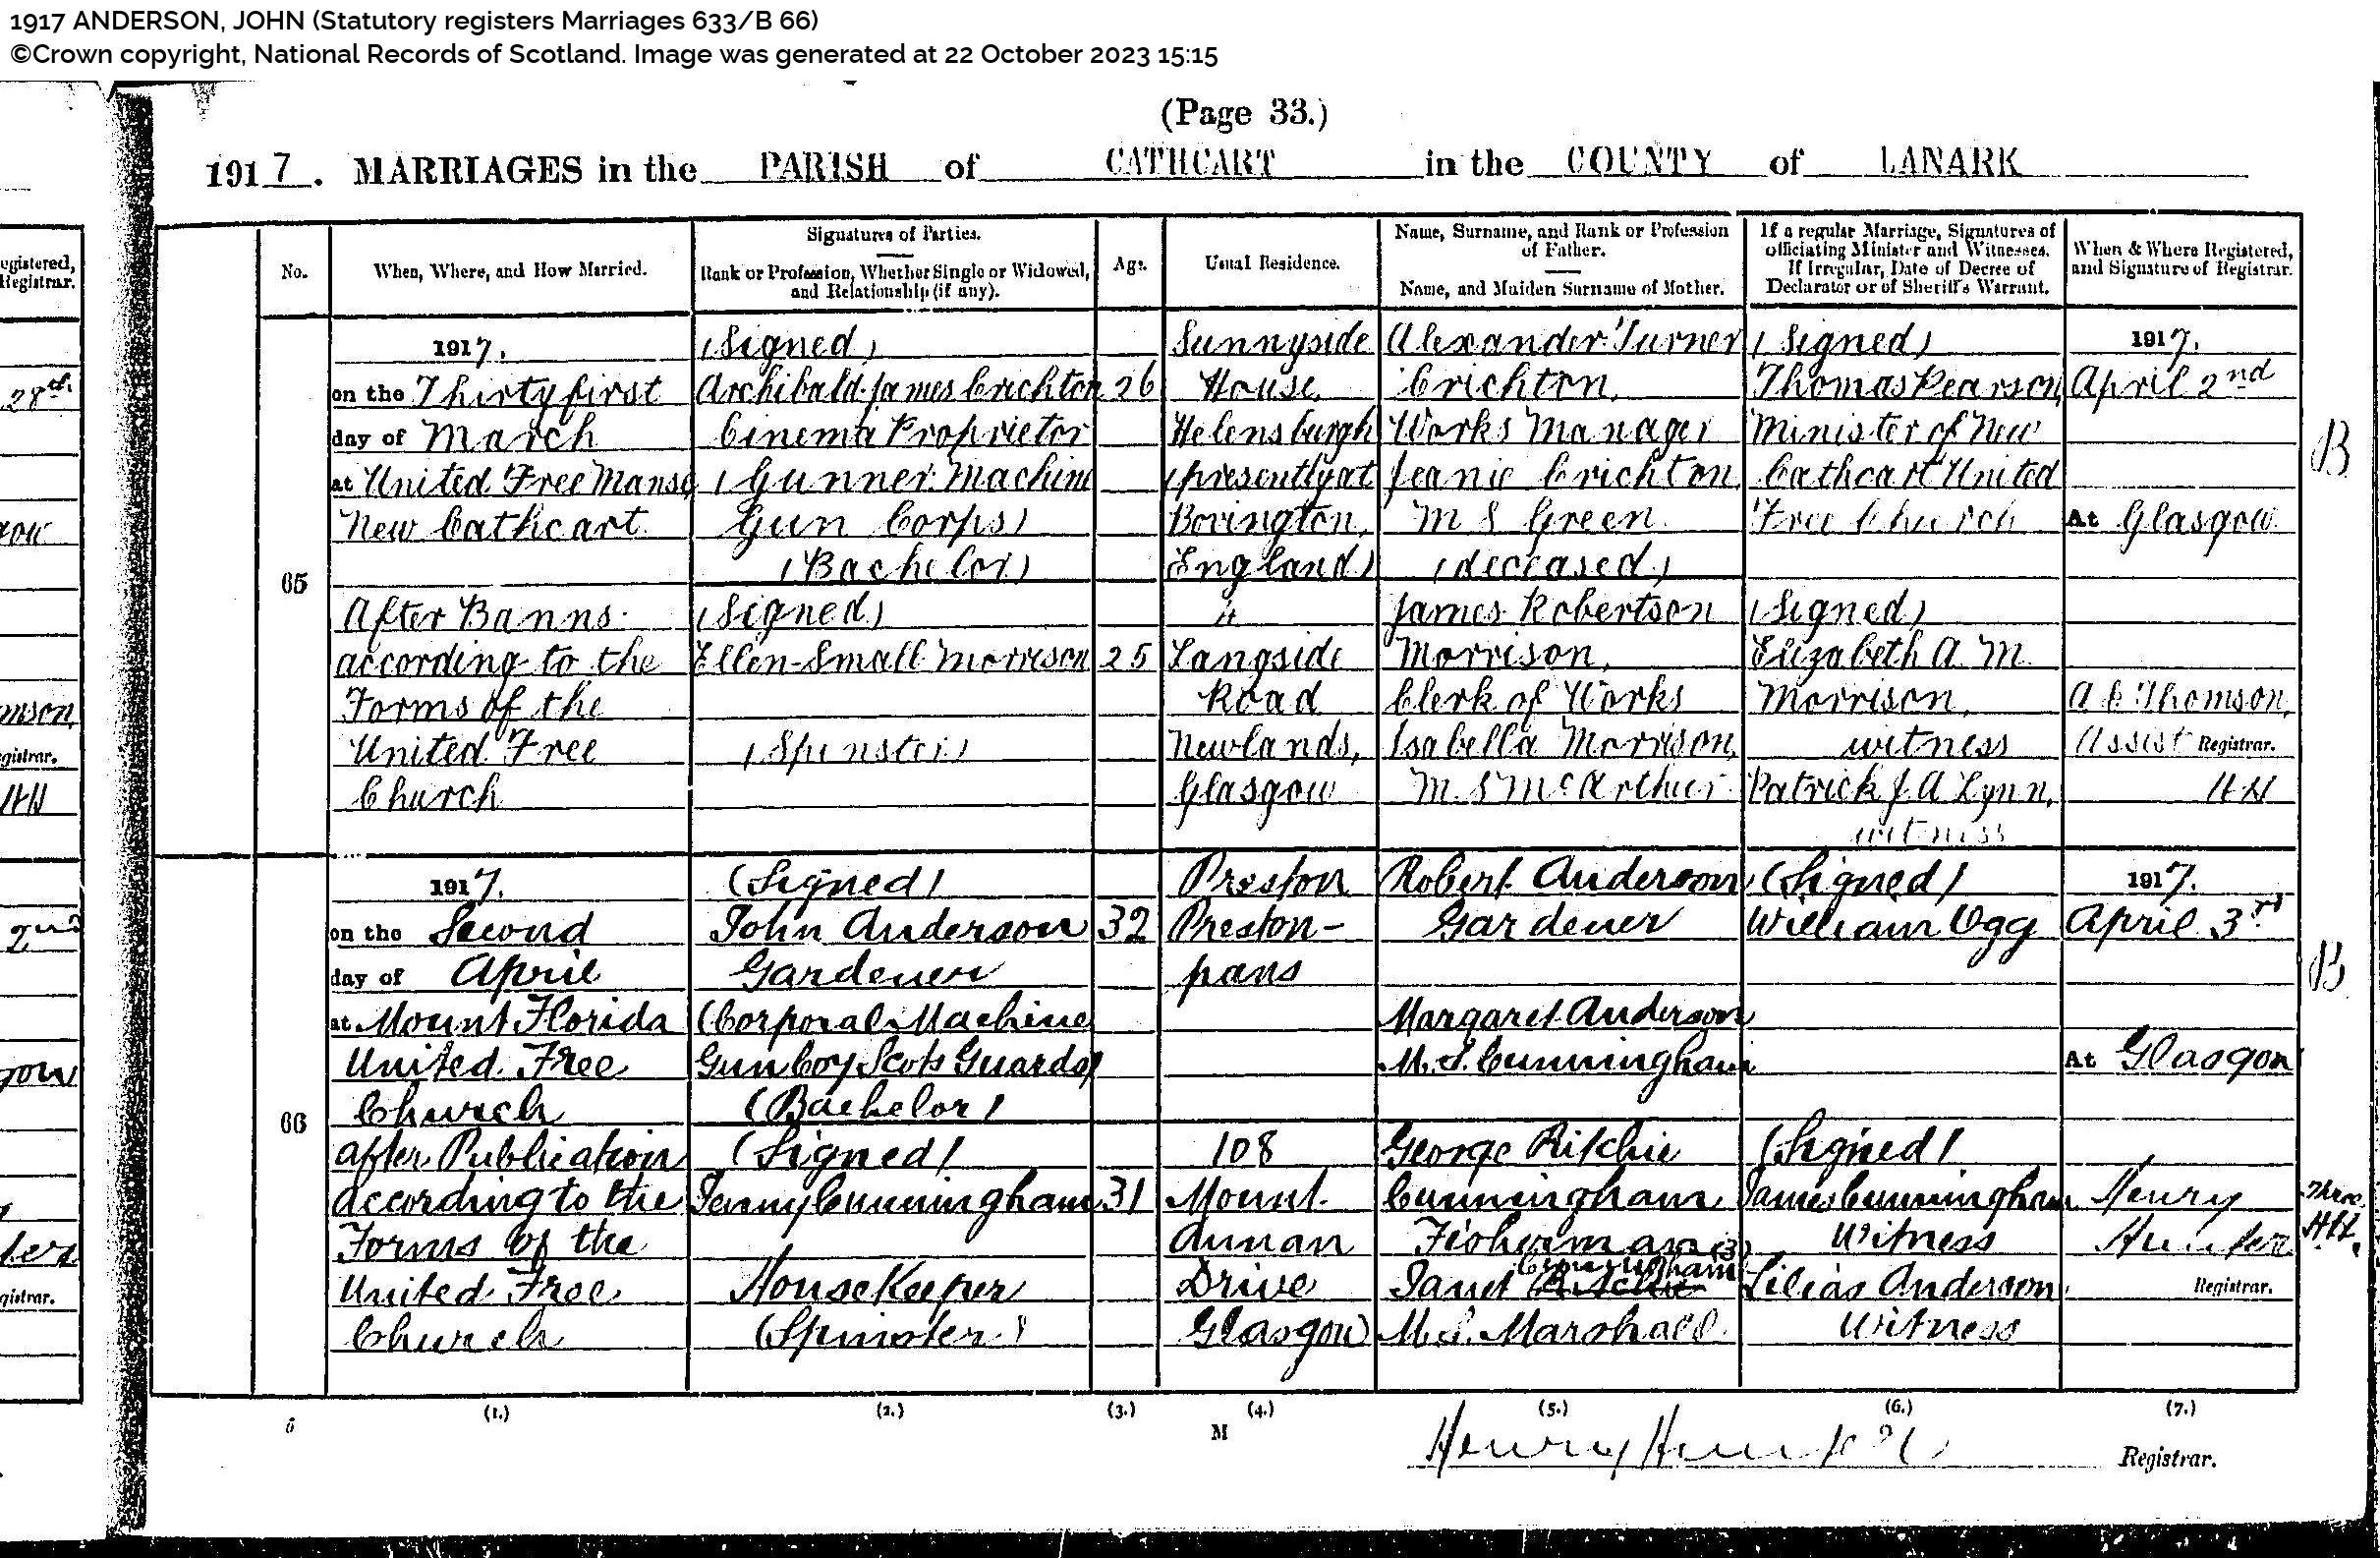 1917 ANDERSON, JOHN (Statutory registers Marriages 633/B 66)
©Crown copyright, National Records of Scotland. Image was generated at 22 October 2023 15:15
(Page 33.)
1917. MARRIAGES in the PARISH of CATHCART in the COUNTY of LANARK
No.
When, Where, and How Married.
Signatures of Parties.
Rank or Profession, Whether Single or Widowed,
and Relationship (if any).
Age.
Usual Residence.
Name, Surname, and Rank or Profession
of Father.
Name, and Maiden Surname of Mother.
If a regular Marriage, Signatures of
officiating Minister and Witnesses.
If Irregular, Date of Decree of
Declarator or of Sheriff's Warrant.
When & Where Registered,
and Signature of Registrar.
65
1917.
on the Thirty first
day of March
at United Free Manse
New Cathcart
After Banns
according to the
Forms of the
United Free
Church
(Signed)
Archibald James Crichton
Cinema Proprietor
(Gunner Machine
Gun Corps)
(Bachelor)
(Signed)
Ellen Small Morrison
(Spinster)
26
25
Sunnyside
House,
Helensburgh
(presently at
Bovington,
England)
4
Langside
Road
Newlands,
Glasgow
Alexander Turner
Crichton,
Works Manager
Jeanie Crichton,
M S Green
(deceased)
James Robertson
Morrison,
Clerk of Works
Isabella Morrison,
M.S McArthur
(Signed)
Thomas Pearson,
Minister of New
Cathcart United
Free Church
(Signed)
Elizabeth A. M.
Morrison,
witness
Patrick J. A Lynn,
witness
1917.
April 2nd
At Glasgow
Thomson,
Assist Registrar.
HH
B
66
1917.
on the Second
day of April
at Mount Florida
United Free
Church
after Publication
according to the
Forms of the
United Free
Church
(Signed)
John Anderson
Gardener
(Corporal Machine
Gun Coy Scots Guards)
(Bachelor)
(Signed)
Jenny Cunningham
HouseKeeper
(Spinster)
32
31
Preston
Preston-
pans
108
Mount
Annan
Drive
Glasgow
Robert Anderson
Gardener
Margaret Anderson
M.S. Cunningham
George Ritchie
Cunningham
Fisherman (3)
Cunningham
Janet Ritchie
M.S. Marshall
(Signed)
William Ogg
(Signed)
James Cunningham
Witness
Lilias Anderson
Witness
1917.
April 3rd
At Glasgow
Henry
Hunter
Registrar.
B
Three
H.H.
(1.)
(2.)
(3.)
(4.)
(5.)
(6.)
(7.)
M
Henry Hunter
Registrar.